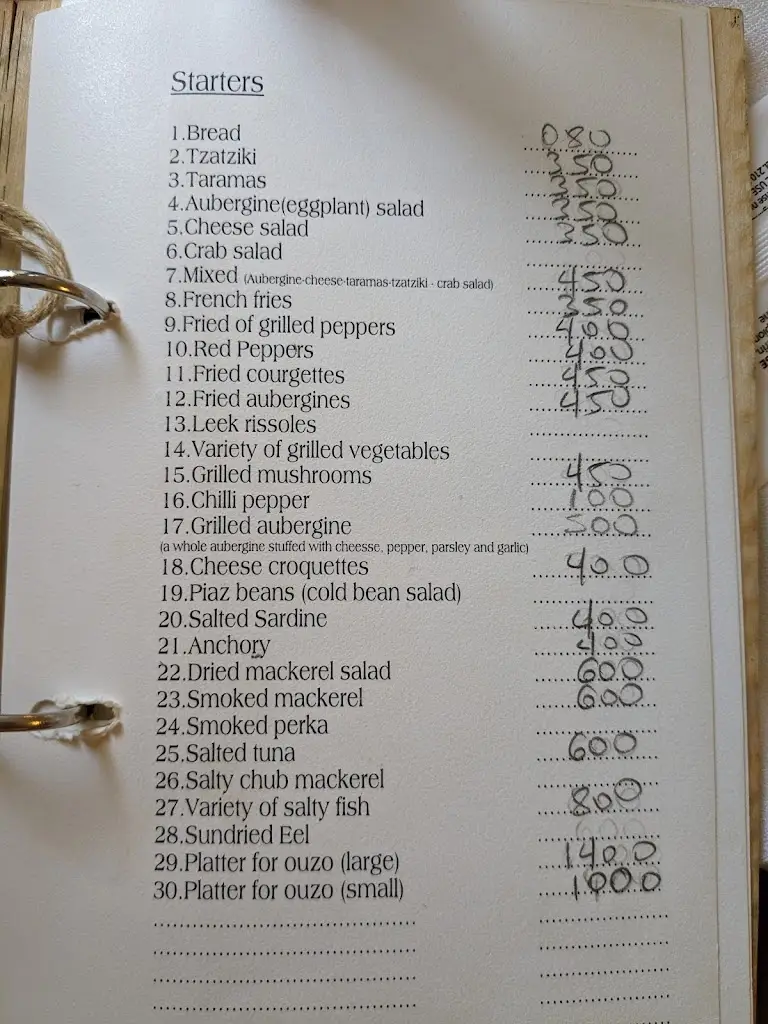 Starters
1.Bread 080
2.Tzatziki 350
3.Taramas 350
4.Aubergine(eggplant) salad 350
5.Cheese salad 350
6.Crab salad
7.Mixed (Aubergine-cheese-taramas-tzatziki - crab salad) 450
8.French fries 350
9.Fried of grilled peppers 400
10.Red Peppers 400
11.Fried courgettes 450
12.Fried aubergines 450
13.Leek rissoles
14.Variety of grilled vegetables
15.Grilled mushrooms 450
16.Chilli pepper 100
17.Grilled aubergine 500
(a whole aubergine stuffed with cheesse, pepper, parsley and garlic)
18.Cheese croquettes 400
19.Piaz beans (cold bean salad)
20.Salted Sardine 400
21.Anchory 400
22.Dried mackerel salad 600
23.Smoked mackerel 600
24.Smoked perka
25.Salted tuna 600
26.Salty chub mackerel
27.Variety of salty fish 800
28.Sundried Eel
29.Platter for ouzo (large) 1400
30.Platter for ouzo (small) 1000